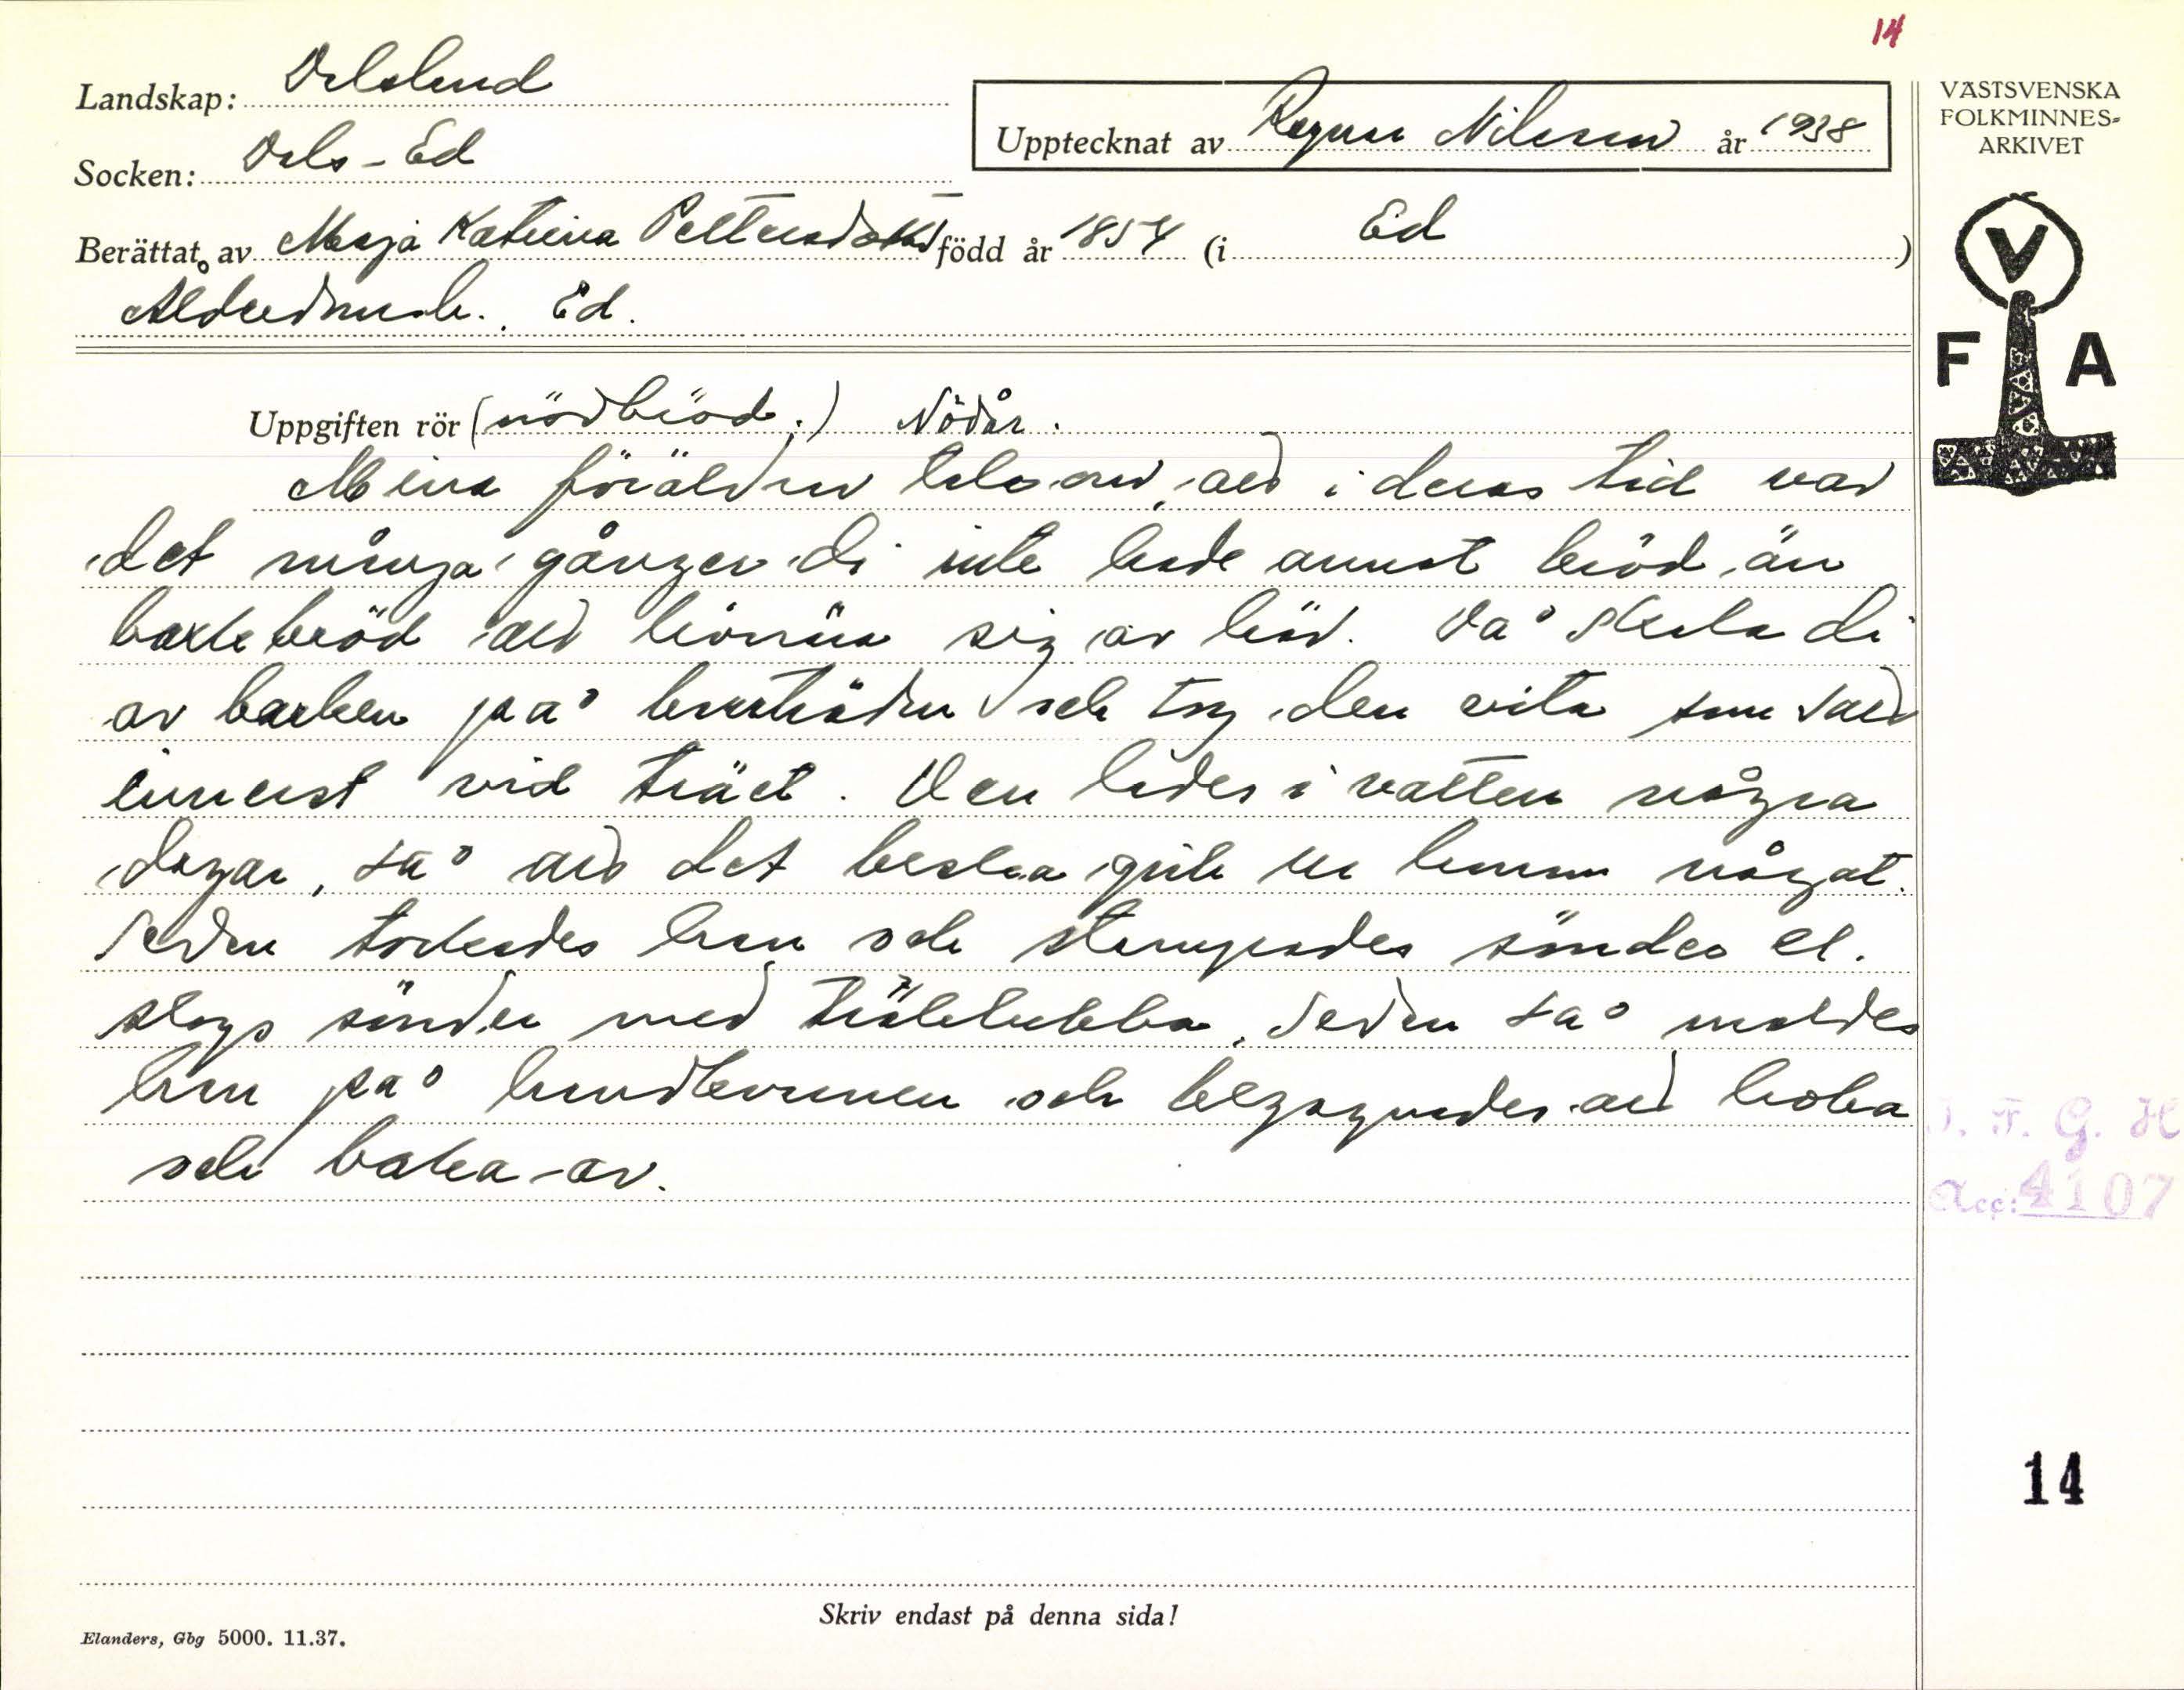 14
Landskap: Dalsland
Socken: Dals-Ed
Upptecknat av Ragnar Nilsson år 1938
VÄSTSVENSKA
FOLKMINNES-
ARKIVET
Berättat av Maja Katrina Pettersdotter född år 1854 (i Ed)
Ålderdomsh. Ed.
V
F A
Uppgiften rör (nödbröd.) Nödår.
Mina föräldrar talao, att i deras tid var
det många gånger di inte hade annat bröd än
barkebröd att livnära sig av bröd. Då skala di
av barken på barrträden och tog den vita som satt
innerst vid träet. Den lades i vatten några
dagar, så att det beska gick ur henne något.
Sedan torkades han och stampades söndes el.
slogs sönder med träklubba. Sedan så maldes
han på handkvarnen och begagnades att koka
och baka av.
D. F. G. H
Acc: 4107
14
Skriv endast på denna sida!
Elanders, Gbg 5000. 11.37.